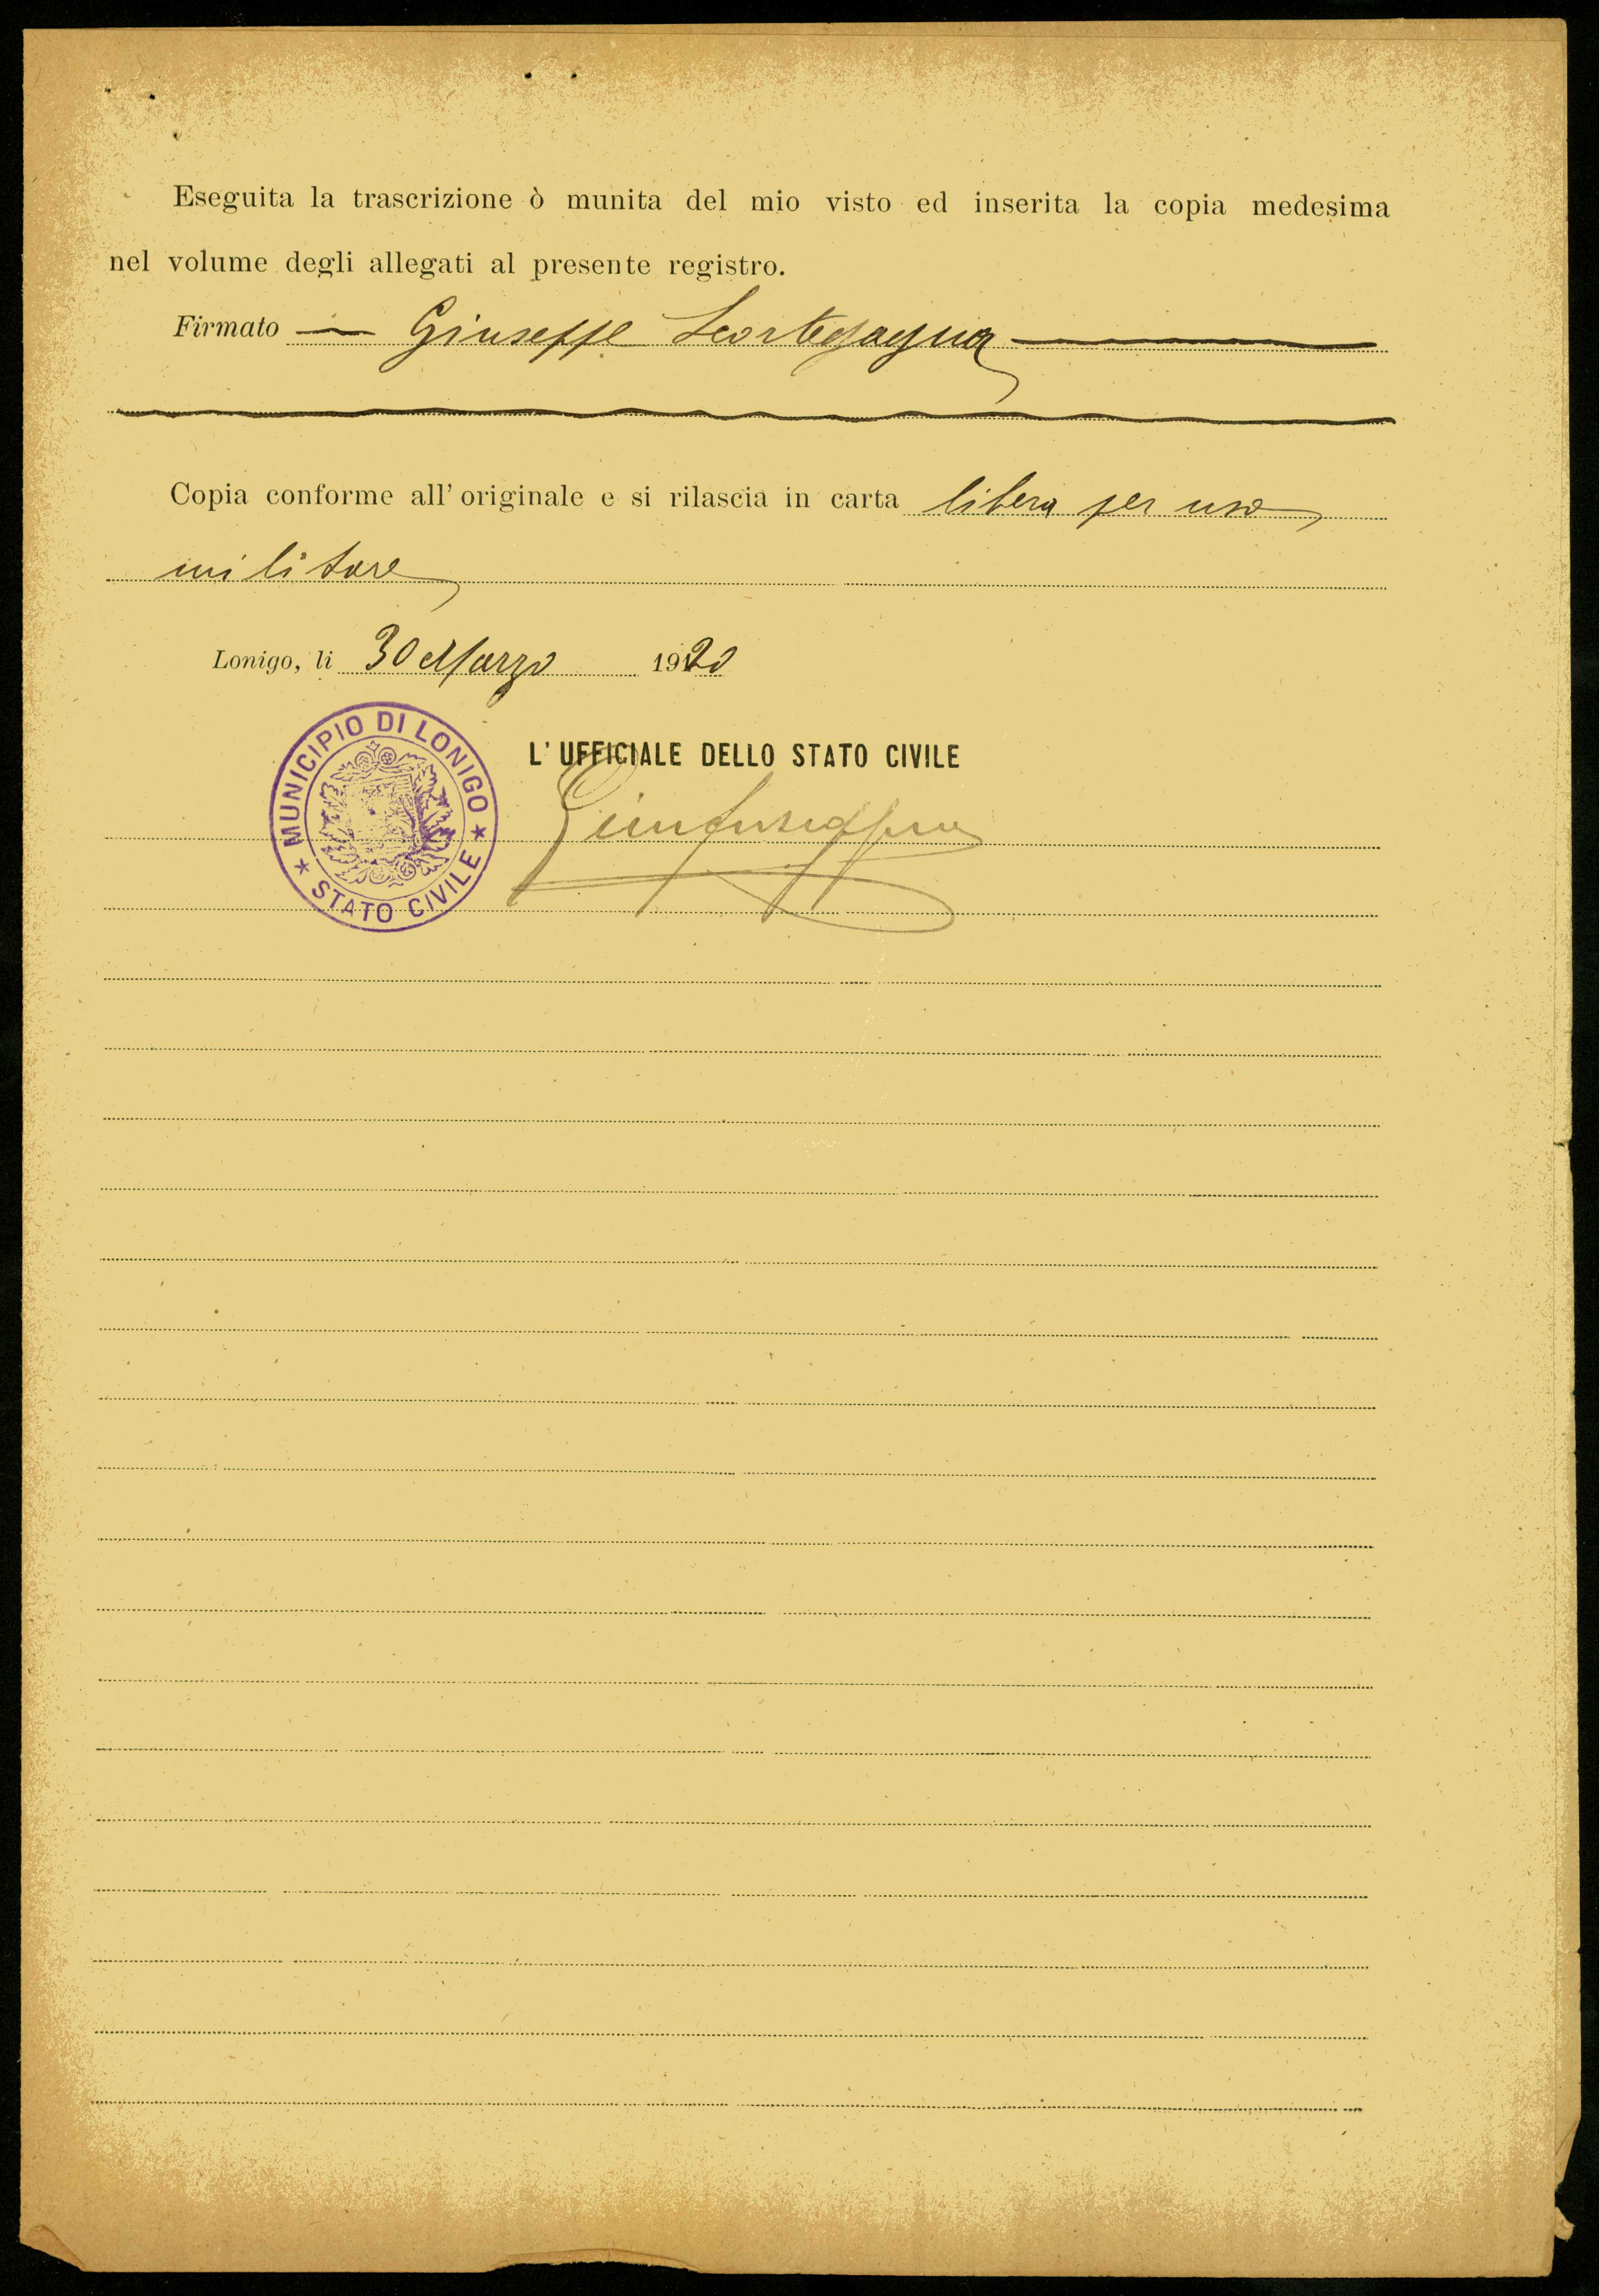 Eseguita la trascrizione ò munita del mio visto ed inserita la copia medesima
nel volume degli allegati al presente registro.
Firmato Giuseppe Scortegagna
Copia conforme all' originale e si rilascia in carta libera per uso
militare
Lonigo, li 30 Marzo 1920
MUNICIPIO DI LONIGO
STATO CIVILE
L' UFFICIALE DELLO STATO CIVILE